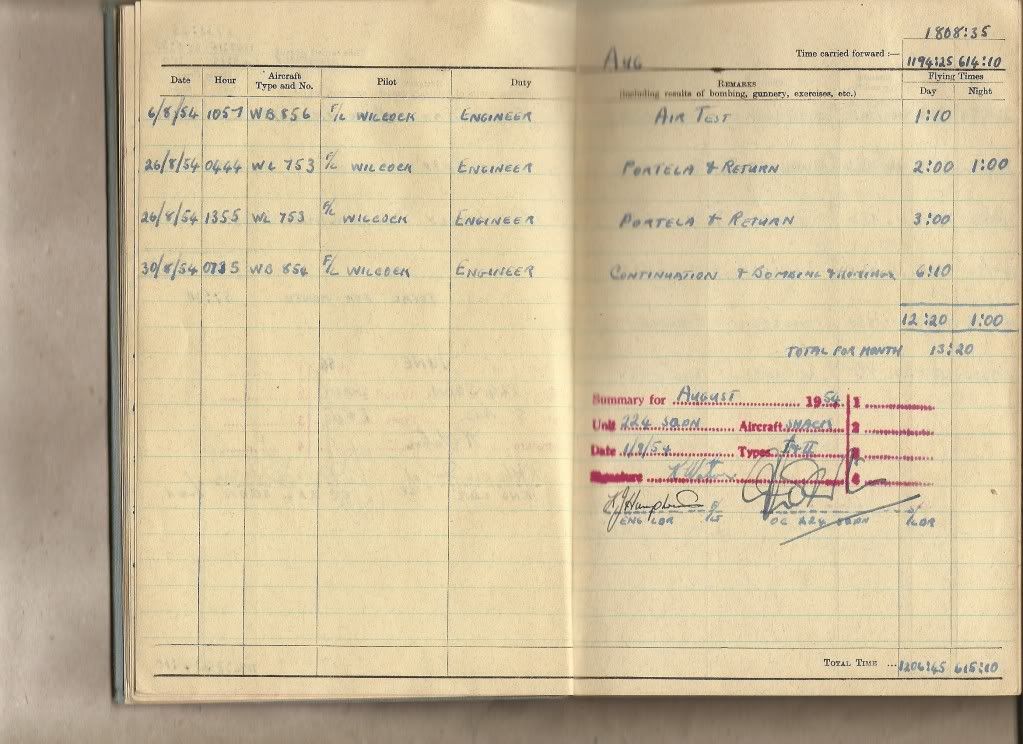 1808:35
Aug Time carried forward :— 1194:25 614:10
Date Hour Aircraft Type and No. Pilot Duty REMARKS (including results of bombing, gunnery, exercises, etc.) Flying Times Day Night
6/8/54 1057 WB 856 F/L WILCOCK ENGINEER AIR TEST 1:10
26/8/54 0444 WL 753 F/L WILCOCK ENGINEER PORTELA & RETURN 2:00 1:00
26/8/54 1355 WL 753 F/L WILCOCK ENGINEER PORTELA & RETURN 3:00
30/8/54 0735 WB 854 F/L WILCOCK ENGINEER CONTINUATION & BOMBING & HOMINGS 6:10
12:20 1:00
TOTAL FOR MONTH 13:20
Summary for AUGUST 1954 1
Unit 224 SQDN Aircraft SHACK 2
Date 1/9/54 Types I & II 3
Signature 4
ENG LDR F/LT OC 224 SQDN S/LDR
TOTAL TIME ... 1206:45 615:10